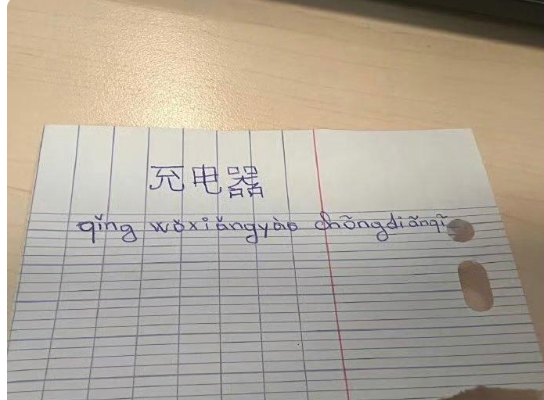 充电器
qǐng wǒxiǎngyào chōngdiǎnqì